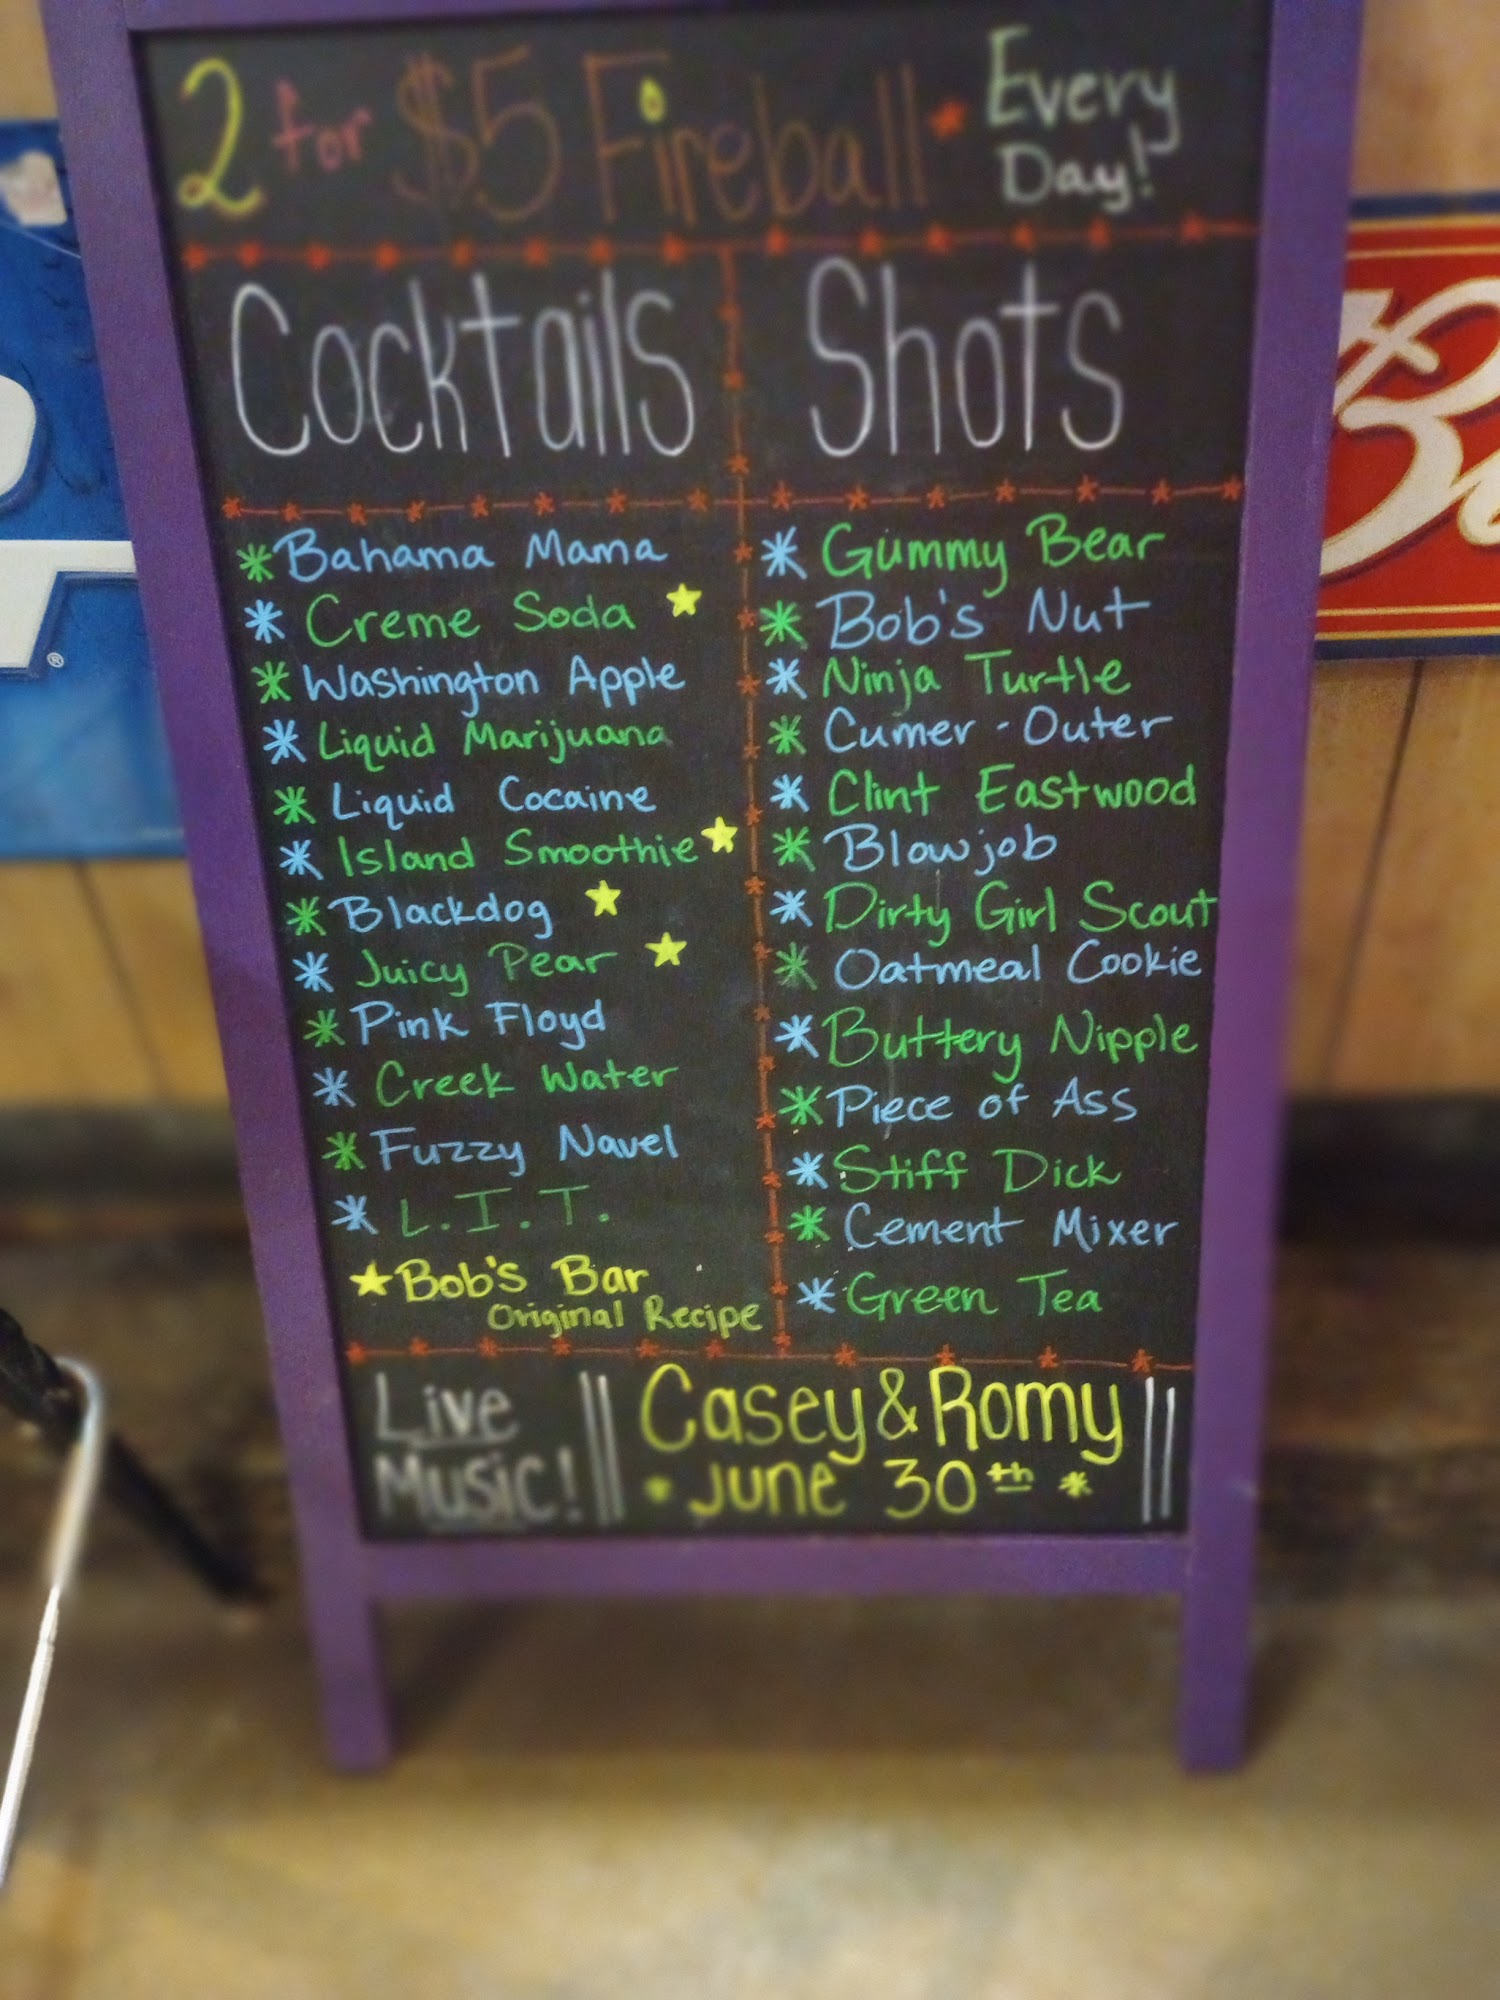 2 for $5 Fireball Every Day!
Cocktails
Bahama Mama
Creme Soda
Washington Apple
Liquid Marijuana
Liquid Cocaine
Island Smoothie
Blackdog
Juicy Pear
Pink Floyd
Creek Water
Fuzzy Navel
L.I.T.
Bob's Bar
Original Recipe
Shots
Gummy Bear
Bob's Nut
Ninja Turtle
Cumer-Outer
Clint Eastwood
Blowjob
Dirty Girl Scout
Oatmeal Cookie
Buttery Nipple
Piece of Ass
Stiff Dick
Cement Mixer
Green Tea
Live
Music!
Casey & Romy
June 30th
®